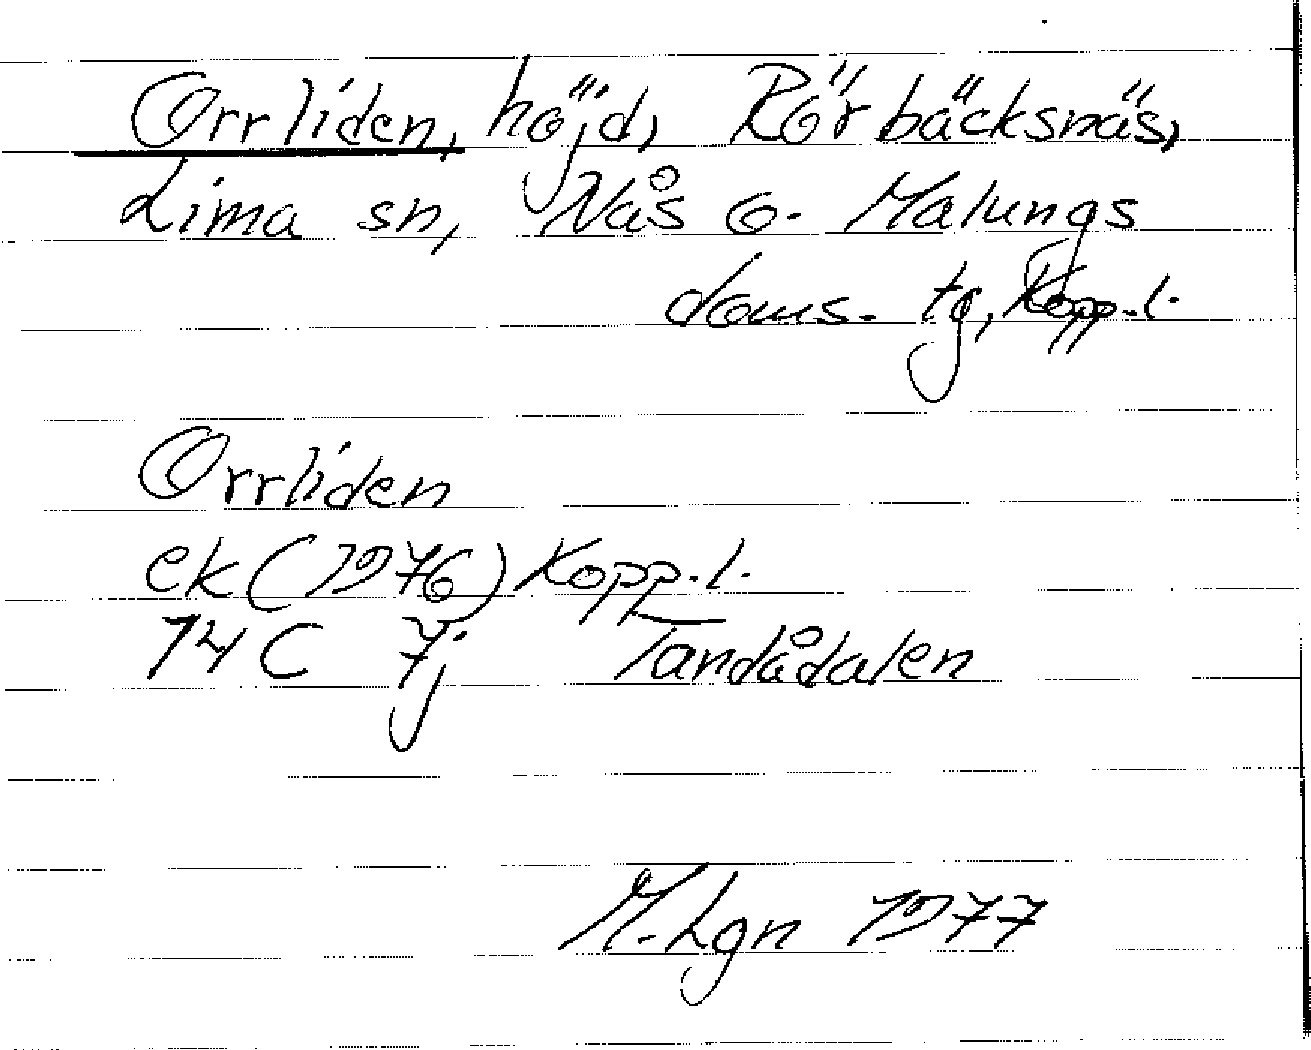 Orrliden, höjd, Rörbäcksnäs,
Lima sn, Nås o. Malungs
doms. tg, Kopp. l.
Orrliden
ek (1976) Kopp. l.
14 C 7j Tandådalen
M. Lgn 1977